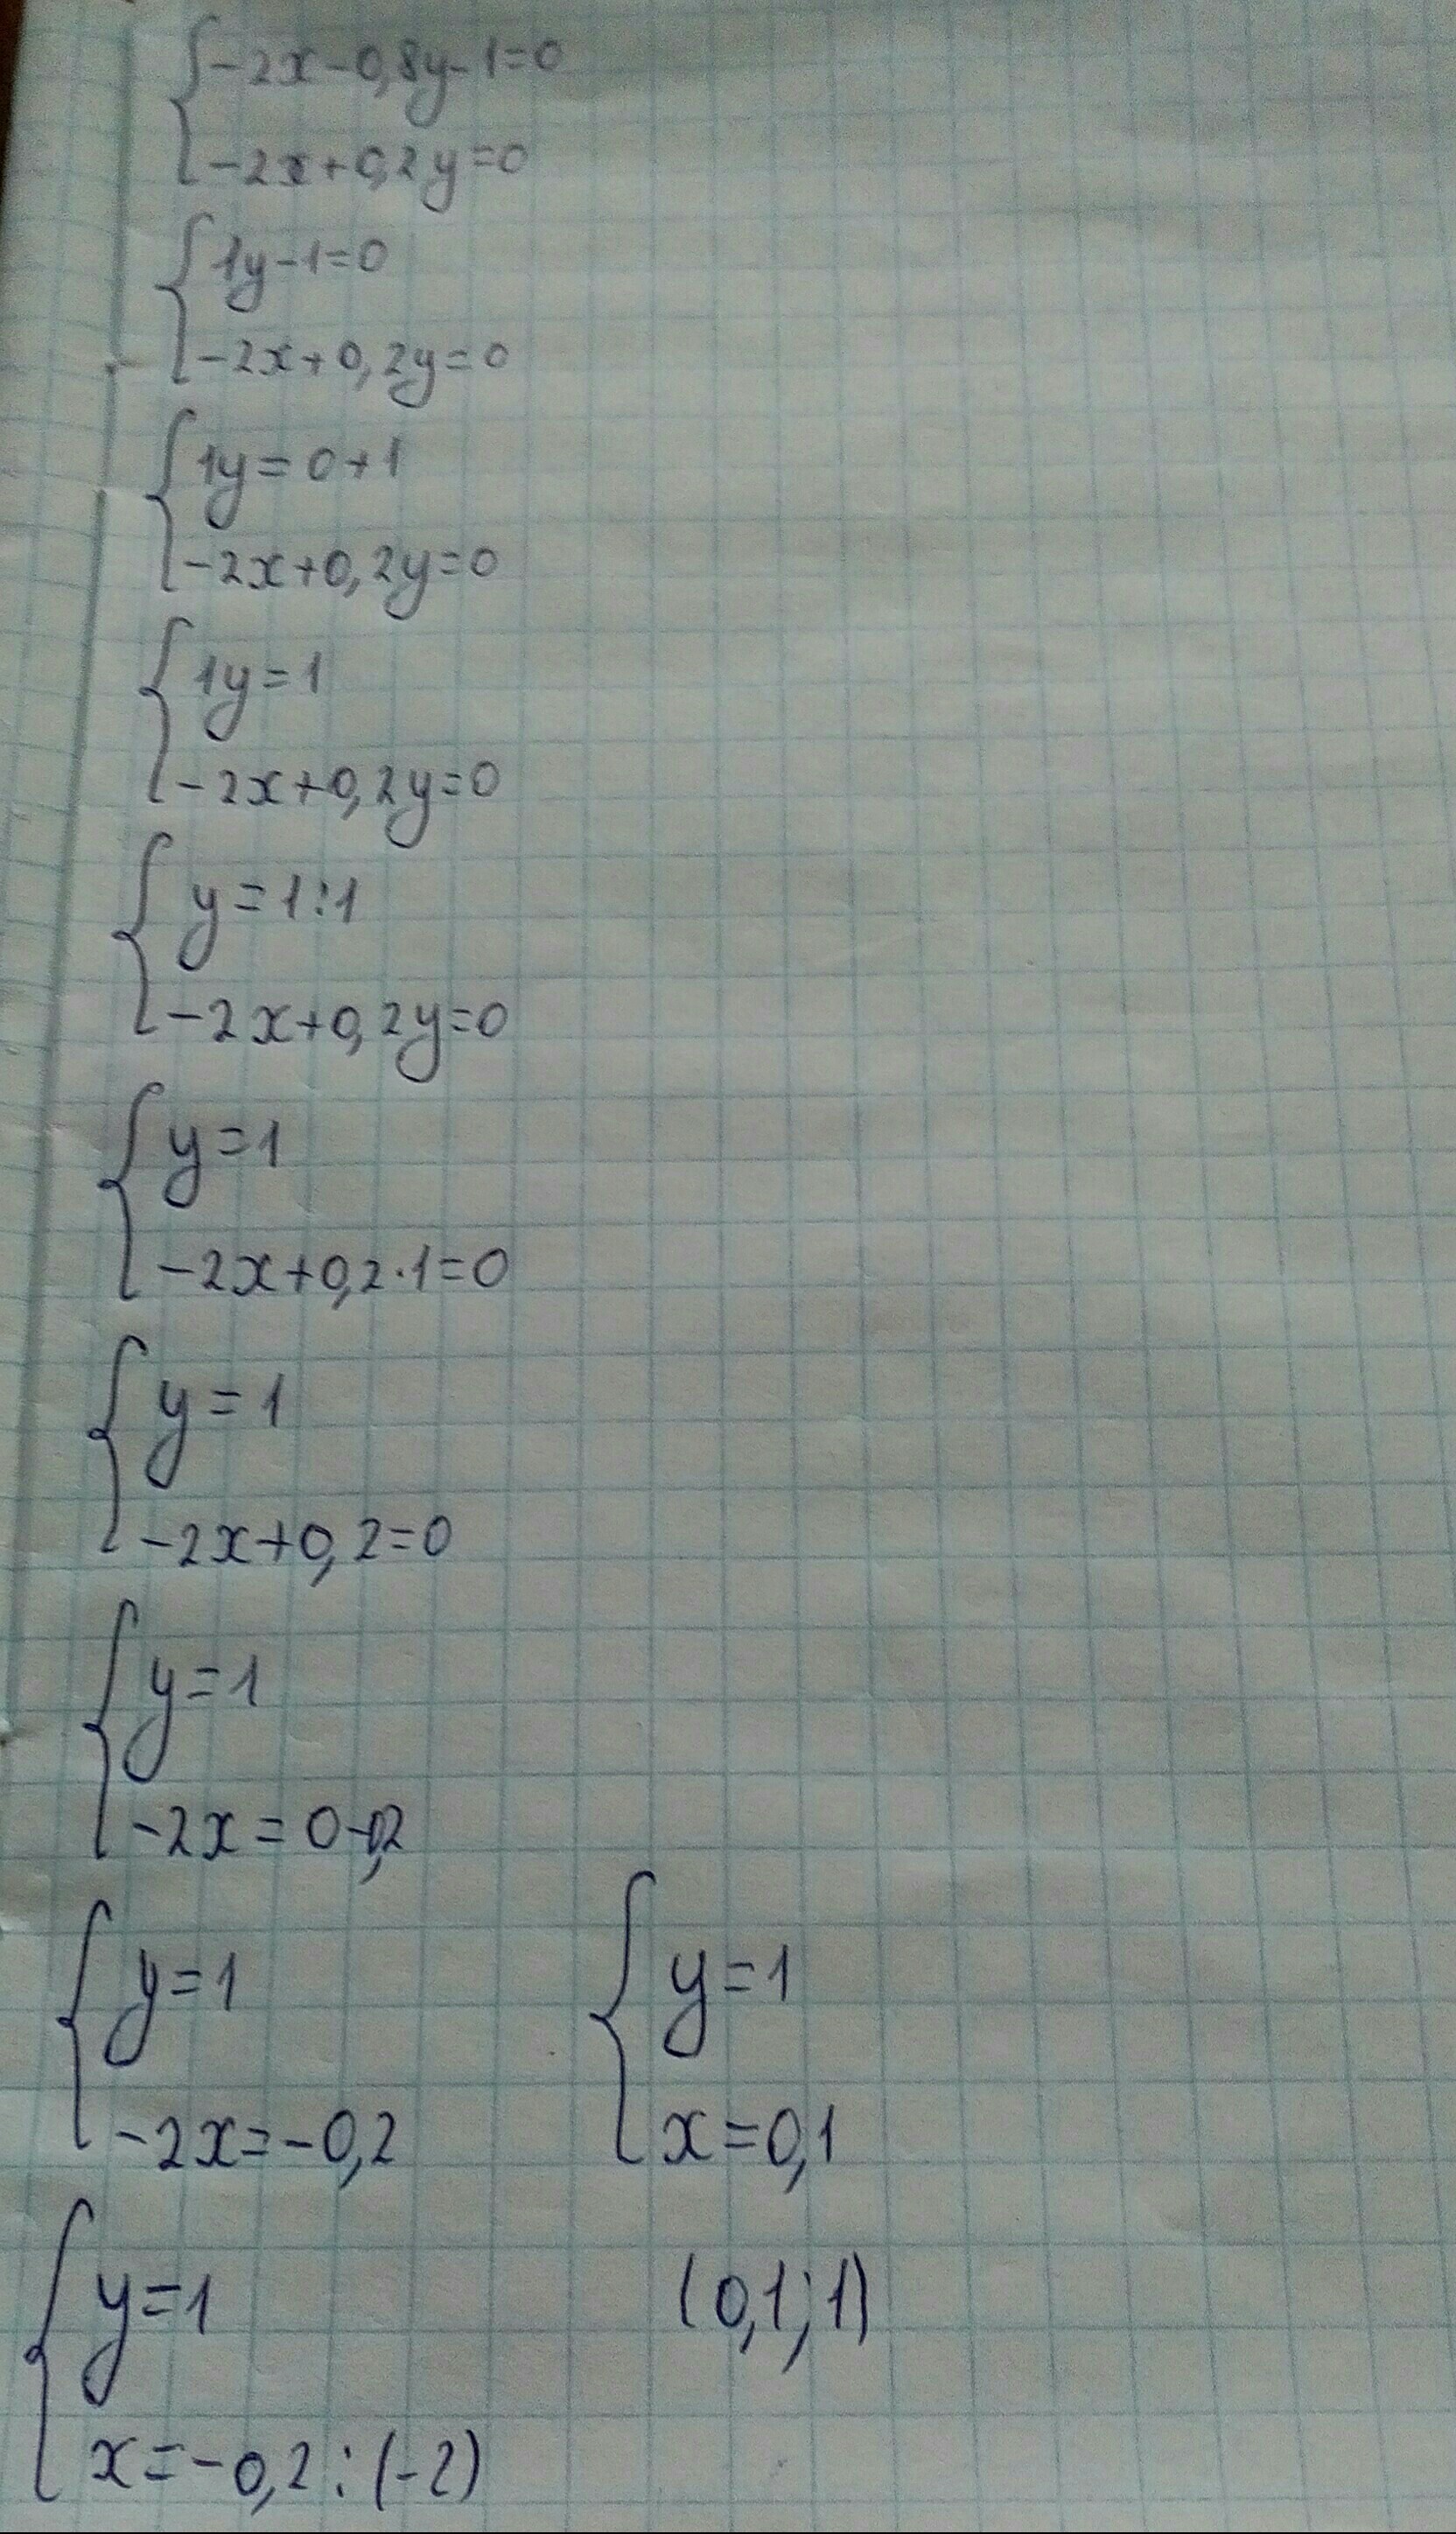 {-2x-0,8y-1=0
-2x+0,2y=0
{1y-1=0
-2x+0,2y=0
{1y=0+1
-2x+0,2y=0
{1y=1
-2x+0,2y=0
{y=1:1
-2x+0,2y=0
{y=1
-2x+0,2·1=0
{y=1
-2x+0,2=0
{y=1
-2x=0-0,2
{y=1
-2x=-0,2
{y=1
x=-0,2:(-2)
{y=1
x=0,1
(0,1;1)